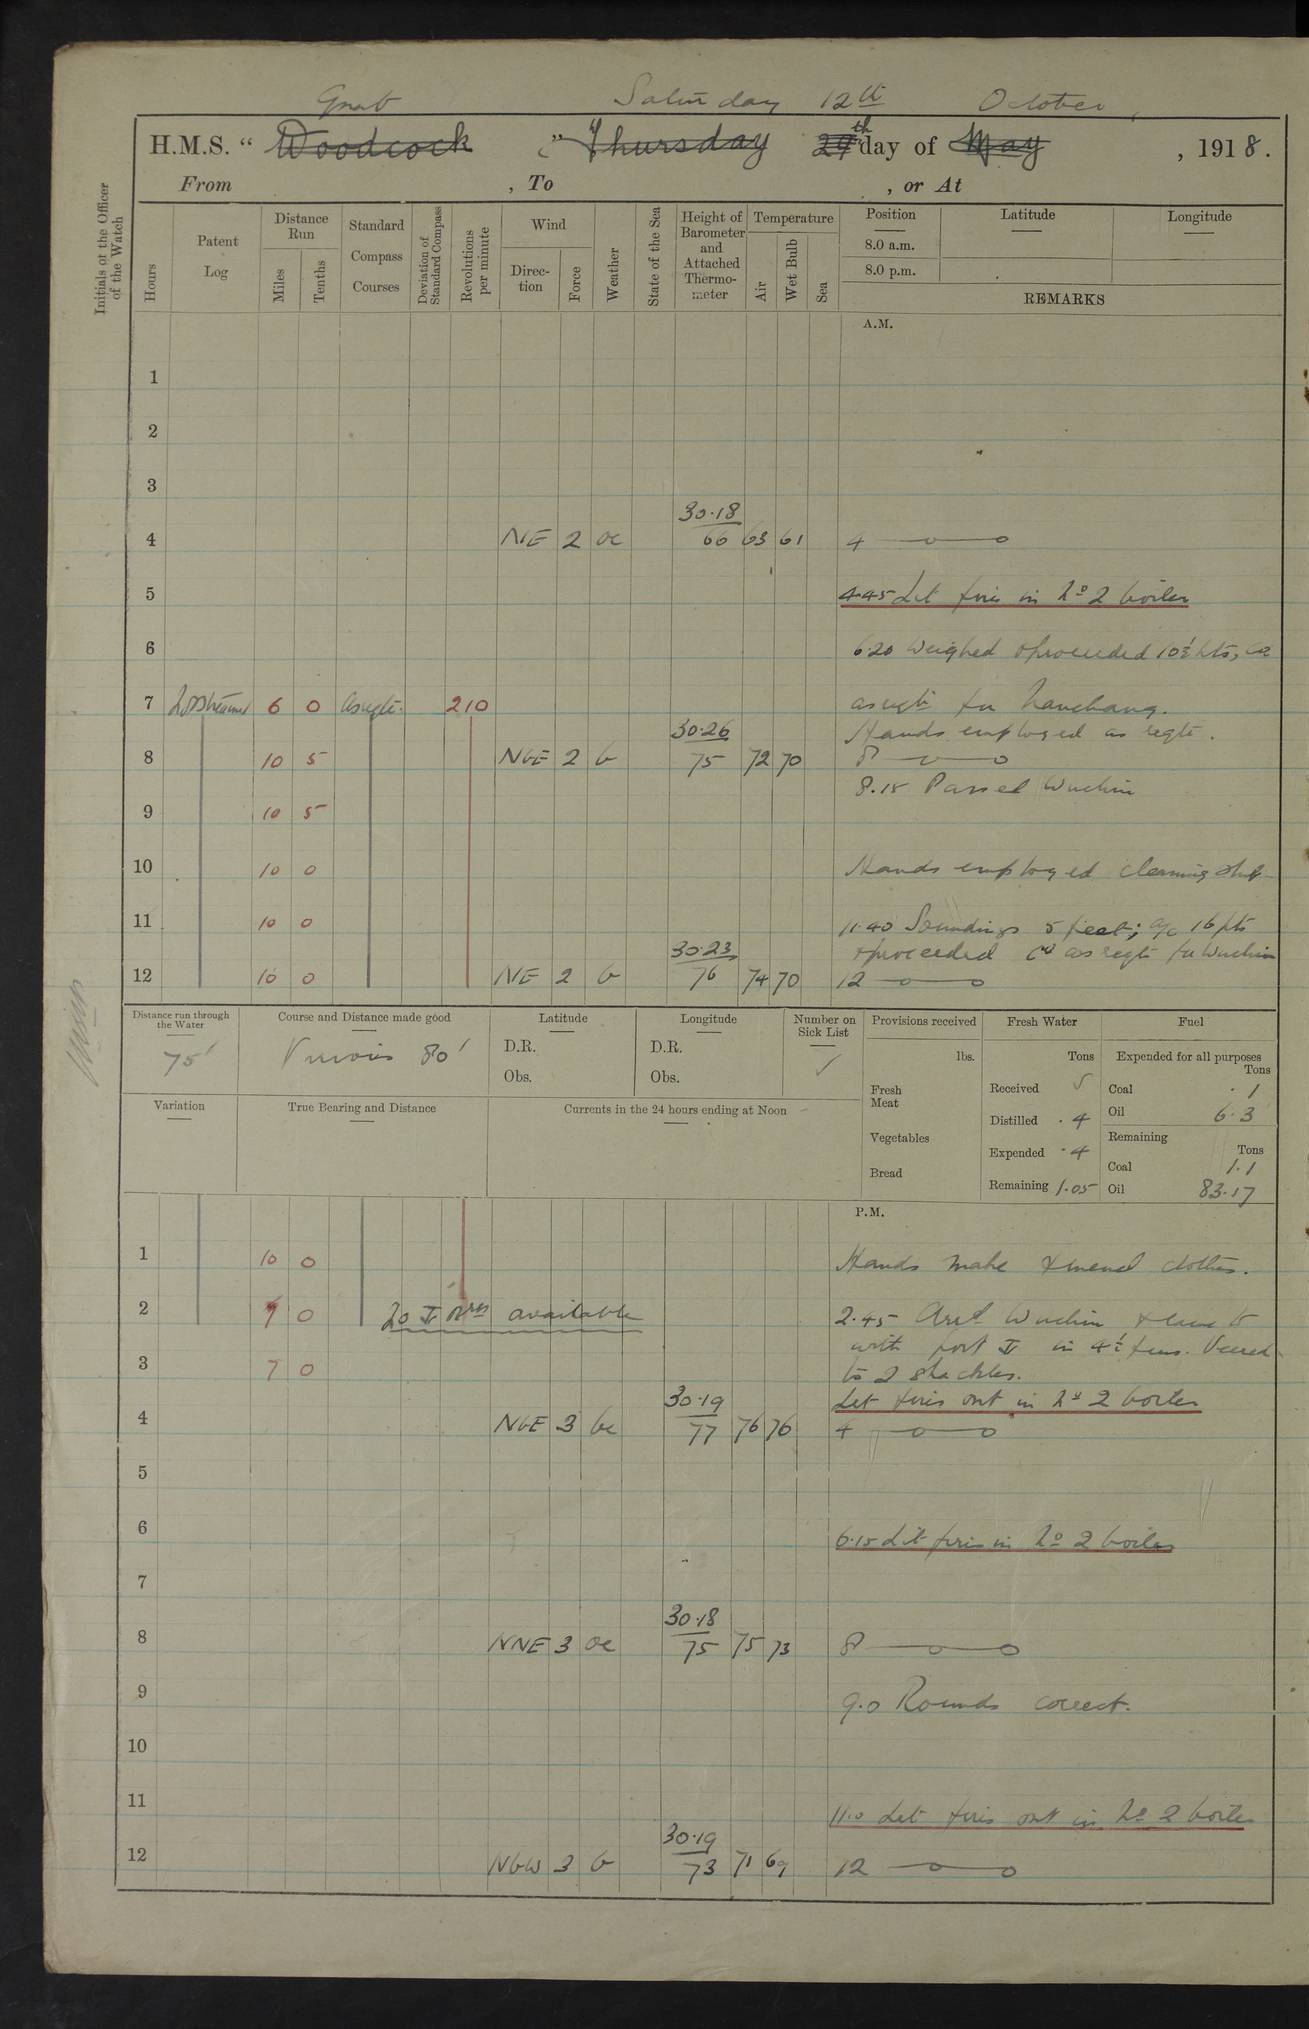 Gnat Saturday 12th October,
H.M.S. “ Woodcock ” Thursday 29th day of May , 1918.
From , To , or At
Initials of the Officer of the Watch
Hours
Patent Log
Distance Run
Miles
Tenths
Standard Compass Courses
Deviation of Standard Compass
Revolutions per minute
Wind
Direc-tion
Force
Weather
State of the Sea
Height of Barometer and Attached Thermo-meter
Temperature
Air
Wet Bulb
Sea
Position
8.0 a.m.
8.0 p.m.
Latitude
Longitude
REMARKS
A.M.
1
2
3
30.18
4 NE 2 oc 66 63 61 4
5 4.45 Lit fires in No 2 boiler
6 6.20 Weighed & proceeded 10½ kts, co
7 6 0 as reqte. 210 as reqte for Nanchang.
30.26 Hands employed as reqte.
8 10 5 NbE 2 b 75 72 70 8
8.15 Passed Wuchin
9 10 5
10 10 0 Hands employed cleaning ship
11 10 0 11.40 Soundings 5 feet; a/c 16 pts
30.23 & proceeded co as reqte for Wuchin
12 10 0 NE 2 b 76 74 70 12
Distance run through the Water
75'
Course and Distance made good
Various 80'
Latitude
D.R.
Obs.
Longitude
D.R.
Obs.
Number on Sick List
Provisions received
lbs.
Fresh Meat
Vegetables
Bread
Fresh Water
Tons
Received
Distilled .4
Expended .4
Remaining 1.05
Fuel
Expended for all purposes
Tons
Coal .1
Oil 6.3
Remaining
Tons
Coal 1.1
Oil 83.17
Variation
True Bearing and Distance
Currents in the 24 hours ending at Noon
P.M.
1 10 0 Hands make & mend clothes.
2 7 0 available 2.45 Arrd Wuchin & came to
with port in 4½ fms. Veered
3 7 0 to 2 shackles.
30.19 Let fires out in No 2 boiler
4 NbE 3 bc 77 76 76 4
5
6 6.15 Lit fires in No 2 boiler
7
30.18
8 NNE 3 oc 75 75 73 8
9 9.0 Rounds correct.
10
11 11.0 Let fires out in No 2 boiler
30.19
12 NbW 3 b 73 71 69 12